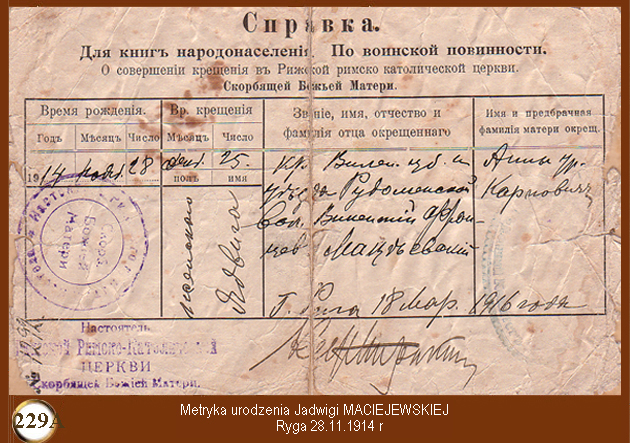 Справка.
Для книгъ народонаселенія. По воинской повинности.
О совершеніи крещенія въ Рижской римско католической церкви.
Скорбящей Божьей Матери.
Время рожденія. Вр. крещенія Званіе, имя, отчество и фамилія отца крещеннаго Имя и предбрачная фамилія матери крещ.
Годъ Мѣсяцъ Число Мѣсяцъ Число
1914 нояб. 28 дек. 25. Кр. Вилен. губ. и Анны ур.
полъ имя уѣзда Рудоменской Карповичъ
женскаго Ядвига вол. Викентій Фран-
цев Мацѣевскій
Г. Рига 18 Мар. 1916 года
Скорб.
Божьей
Матери
Настоятель
Римско-Католической
ЦЕРКВИ
Скорбящей Божіей Матери.
№
229A
Metryka urodzenia Jadwigi MACIEJEWSKIEJ
Ryga 28.11.1914 r